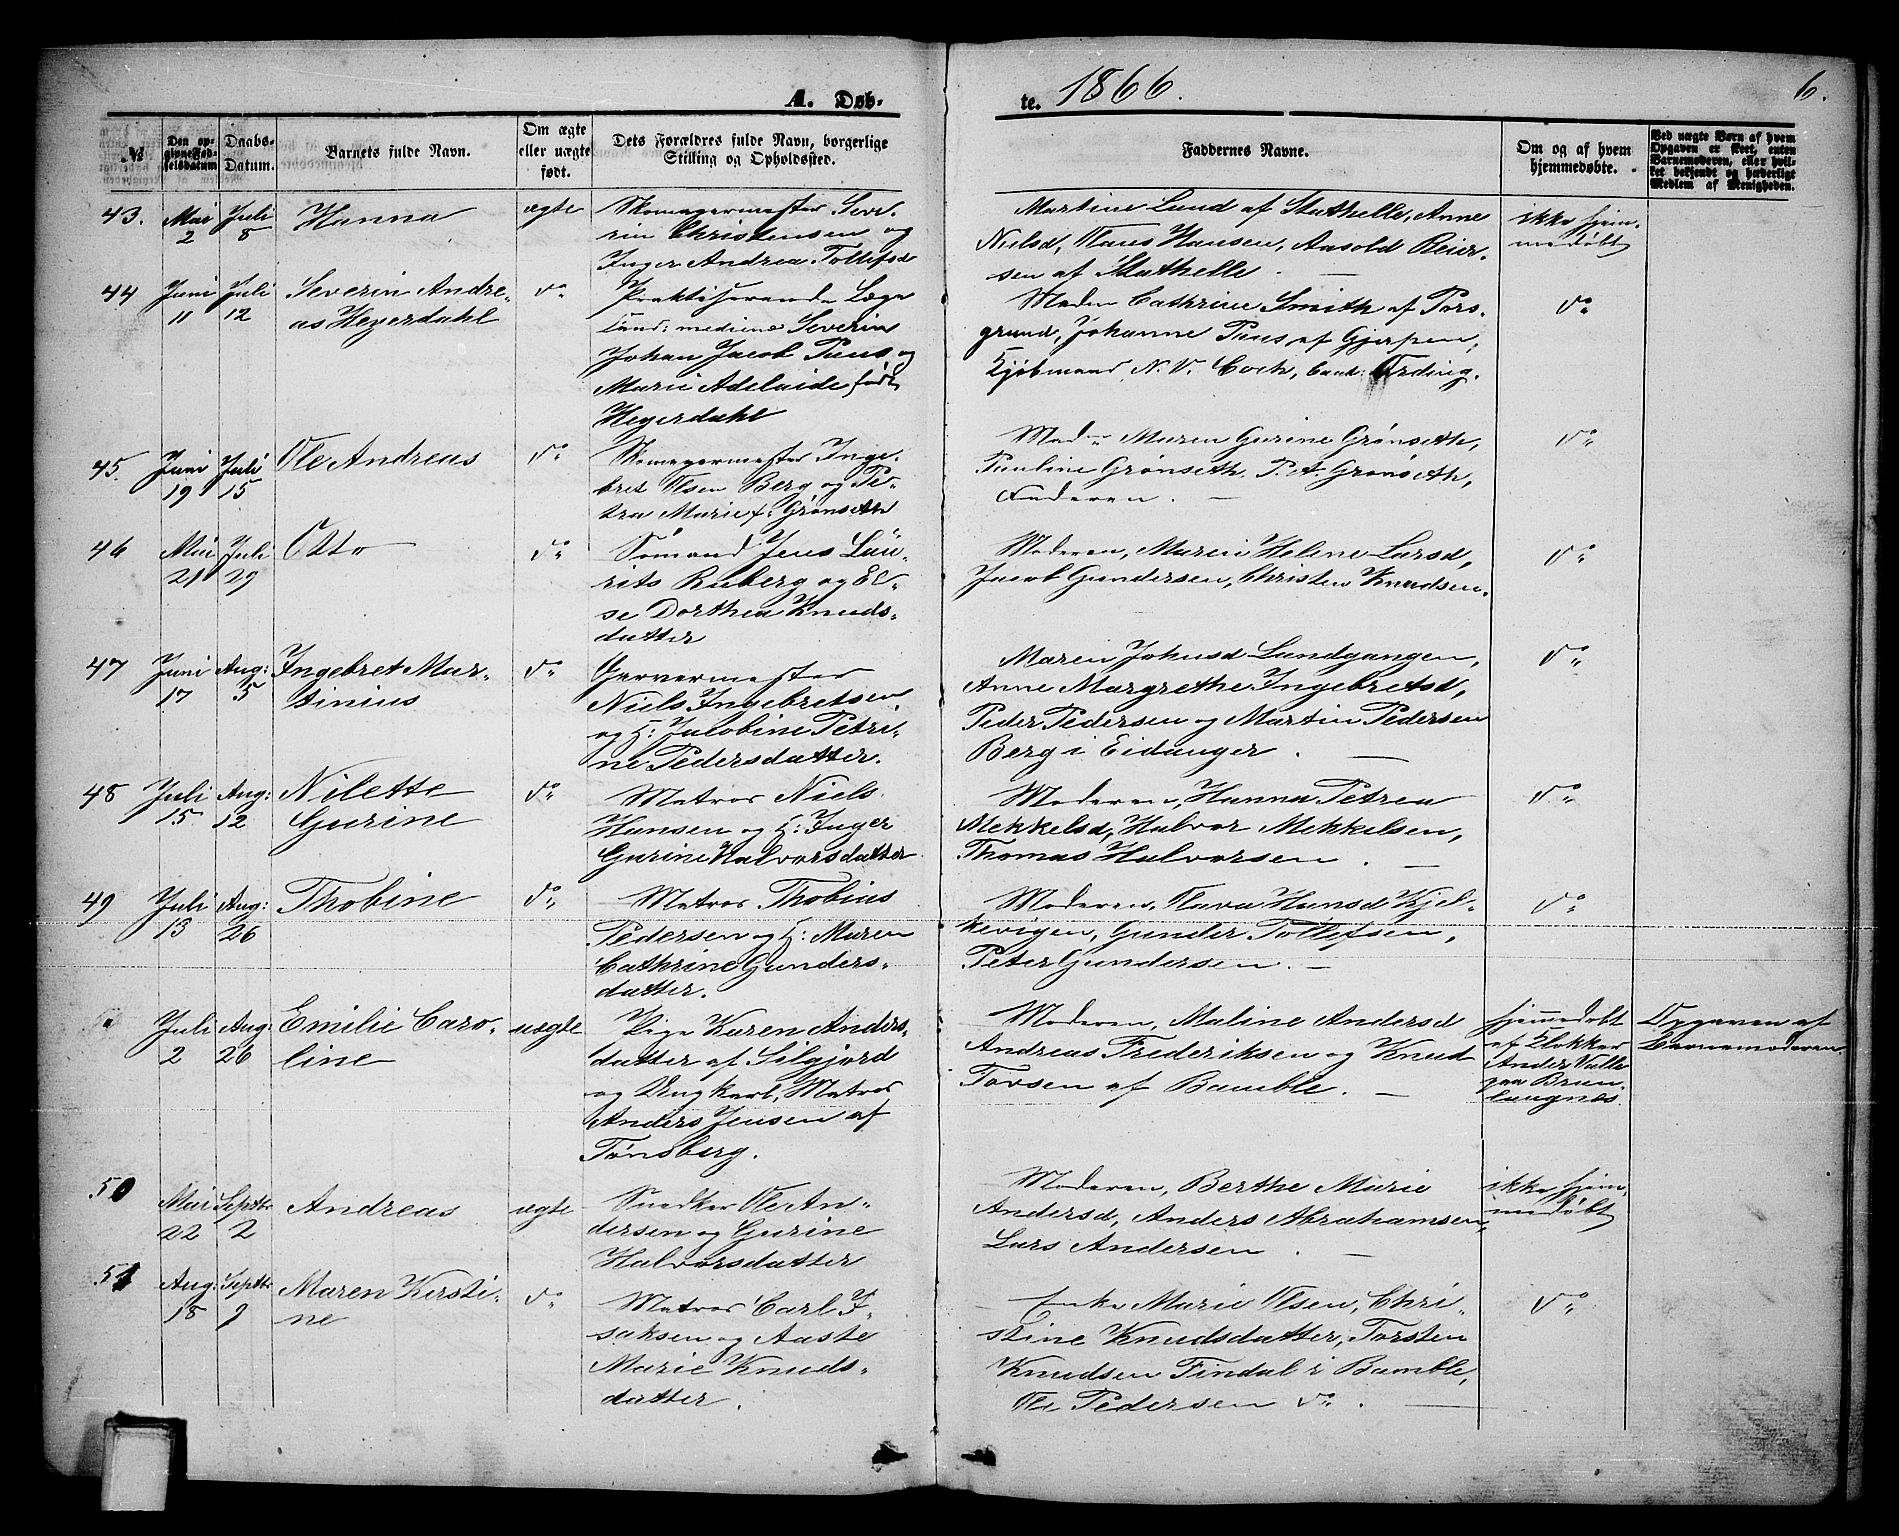 A. Døb-
te. 1866.
6.
№
Den op-
givne Fød-
selsdatum
Daabs-
Datum.
Barnets fulde Navn.
Om ægte
eller uægte
født.
Dets Forældres fulde Navn, borgerlige
Stilling og Opholdssted.
Faddernes Navne.
Om og af hvem
hjemmedøbte.
Ved uægte Børn af hvem
Opgaven er skeet, enten
Barnemoderen, eller hvil-
ket bekjendt og hæderligt
Medlem af Menigheden.
43. Mai 2 Juli 8 Hanna ægte
Skomagermester Seve-
rin Christensen og
Inger Andrea Tollefsd
Martine Lund af Stathelle, Anne
Nielsd, Claus Hansen, Aasold Reier-
sen af Stathelle
ikke hjem-
medøbt
44 Juni 11 Juli 12 Severin Andre-
as Heyerdahl
do
Praktiserende Læge
Cand: medicine Severin
Johan Jacob Puus og
Marie Adelaide født
Heyerdahl
Madm Cathrine Smith af Pors-
grund, Johanne Puus af Gjerpen,
Kjøbmand N. V. Coch, Cand: Ording.
do
45. Juni 19 Juli 15 Ole Andreas do
Skomagermester Inge-
bret Olsen Berg og Pe-
tra Marie f: Grønseth
Madm Maren Gurine Grønseth,
Pauline Grønseth, P. A. Grønseth,
Faderen.
do
46 Mai 21 Juli 29 Otto do
Sømand Jens Lau-
rits Ruberg og El-
se Dorthea Knuds-
datter
Moderen, Maren Helene Larsd,
Jacob Gundersen, Christen Knudsen.
do
47 Juni 17 Aug: 5 Ingebret Mar-
tinius
do
Garvermester
Niels Ingebretsen
og H: Jacobine Petri-
ne Pedersdatter.
Maren Johnsd Landgangen,
Anne Margrethe Ingebretsd,
Peder Pedersen og Martin Pedersen
Berg i Eidanger.
do
48 Juli 15 Aug: 12 Nilette
Gurine
do
Matros Niels
Hansen og H: Inger
Gurine Halvorsdatter
Moderen, Hanna Petrea
Mekkelsd, Halvor Mekkelsen,
Thomas Halvorsen.
do
49 Juli 13 Aug: 26 Thobine do
Matros Thobias
Pedersen og H: Maren
Cathrine Gunders-
datter.
Moderen, Olava Hansd Kjel-
kevigen, Gunder Tollefsen,
Peter Gundersen.
do
Juli 2 Aug: 26 Emilie Caro-
line
uægte
Pige Karen Anders-
datter af Silgjord
og Ungkarl, Matros
Anders Jensen af
Tønsberg.
Moderen, Maline Andersd
Andreas Frederiksen og Knud
Tovsen af Bamble.
hjemmedøbt
af Klokker
Anders Valle
paa Brun-
laugnæs.
Opgaven af
Barnemoderen.
50 Mai 22 Septbr 2 Andreas ægte
Snedker Ole An-
dersen og Gurine
Halvorsdatter
Moderen, Berthe Marie
Andersd, Anders Abrahamsen,
Lars Andersen.
ikke hjem-
medøbt
51 Aug: 18 Septbr 9 Maren Kirsti-
ne
do
Matros Carl I-
saksen og Aaste
Marie Knuds-
datter.
Enke Marie Olsen, Chri-
stine Knudsdatter, Torsten
Knudsen Findal i Bamble,
Ole Pedersen do.
do